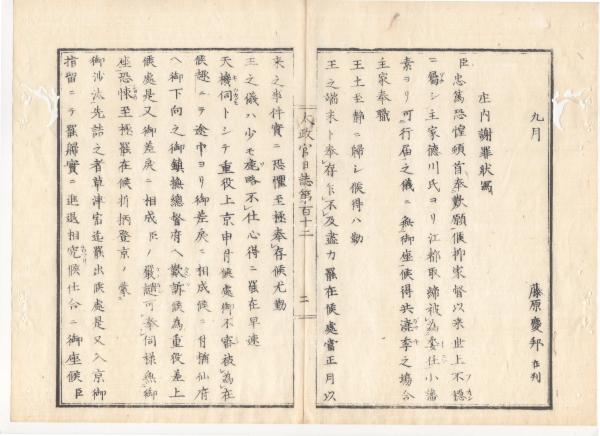 九月
藤原慶邦 在判
庄内謝罪状写
臣忠篤恐惶頓首奉歎願候抑家督以来世上不穏
ニ属シ主家徳川氏ヨリ江都取締被為委任小藩
素ヨリ可行届之儀ニ無御座候得共湊季之場合
主家奉職
王土至静ニ帰シ候得ハ勤
王之端末ト奉存乍不及尽力罷在候処当正月以
太政官日誌第百十二
二
来之事件実ニ恐懼至極奉存候尤勤
王之儀ハ少モ麁略不仕心得ニ罷在早速
天機伺トシテ重役上京申付候処御不審被為在
候趣ニテ途中ヨリ御差戻ニ相成候ニ付猶仙府
ヘ御下向之御鎮撫総督府ヘ歎訴候為重役差上
候処是又御差戻ニ相成臣ノ厳譴可奉伺様無御
座恐悚至極罷在候折柄登京ノ蒙
御沙汰先詰之者草津宿迄罷出候処是又入京御
指留ニテ罷帰実ニ進退相究候仕合ニ御座候臣